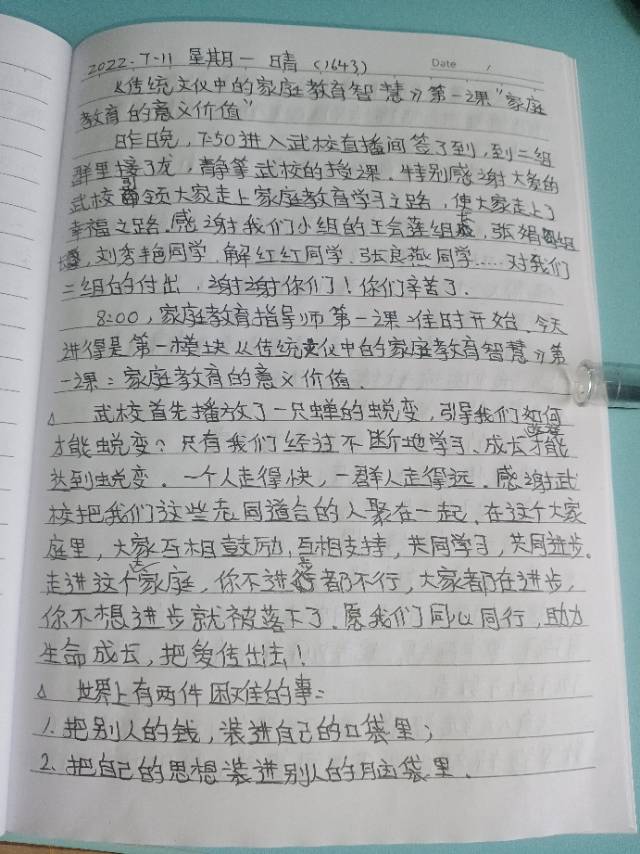 2022.7.11 星期一 晴 (1643)
Date /
《传统文化中的家庭教育智慧》第一课“家庭
教育的意义价值”
昨晚,7:50进入武校直播间签了到,到二组
群里接了龙,静等武校的授课。特别感谢大爱的
武校带领大家走上家庭教育学习之路,使大家走上了
幸福之路。感谢我们小组的王会莲组长,张娟组
长,刘秀艳同学,解红红同学,张良燕同学……对我们
二组的付出,谢谢你们!你们辛苦了。
8:00,家庭教育指导师第一课准时开始。今天
进得是第一模块《传统文化中的家庭教育智慧》第
一课:家庭教育的意义价值。
△ 武校首先播放了一只蝉的蜕变,引导我们如何
才能蜕变?只有我们经过不断地学习、成长才能
达到蜕变。一个人走得快,一群人走得远。感谢武
校把我们这些志同道合的人聚在一起。在这个大家
庭里,大家互相鼓励,互相支持,共同学习,共同进步。
走进这个家庭,你不进步都不行,大家都在进步,
你不想进步就被落下了。愿我们同心同行,助力
生命成长,把爱传出去!
△ 世界上有两件困难的事:
1. 把别人的钱,装进自己的口袋里;
2. 把自己的思想装进别人的脑袋里。